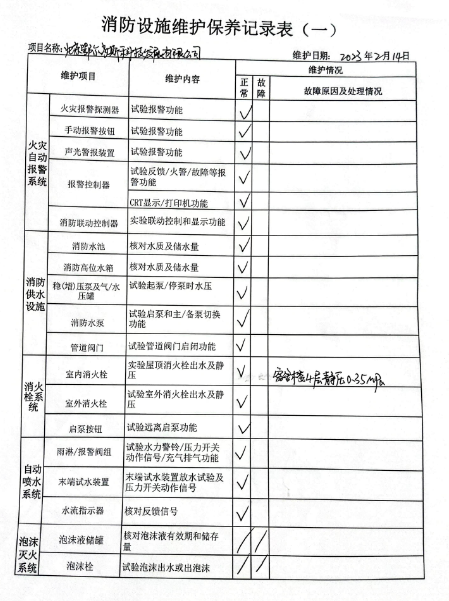 消防设施维护保养记录表（一）
项目名称: 北京 科技 有限公司 维护日期: 2023年2月14日
维护项目 维护内容 维护情况
正常 故障 故障原因及处理情况
火灾自动报警系统
火灾报警探测器 试验报警功能 √
手动报警按钮 试验报警功能 √
声光警报装置 试验报警功能 √
报警控制器 试验反馈/火警/故障等报
警功能 √
CRT显示/打印机功能 √
消防联动控制器 实验联动控制和显示功能 √
消防供水设施
消防水池 核对水质及储水量 √
消防高位水箱 核对水质及储水量 √
稳(增)压泵及气/水
压罐 试验起泵/停泵时水压 √
消防水泵 试验启泵和主/备泵切换
功能 √
管道阀门 试验管道阀门启闭功能 √
消火栓系统
室内消火栓 实验屋顶消火栓出水及静
压 √ 4层静压0.35MPa
室外消火栓 试验室外消火栓出水及静
压 √
启泵按钮 试验远离启泵功能 √
自动喷水系统
雨淋/报警阀组 试验水力警铃/压力开关
动作信号/充气排气功能 √
末端试水装置 末端试水装置放水试验及
压力开关动作信号 √
水流指示器 核对反馈信号 √
泡沫灭火系统
泡沫液储罐 核对泡沫液有效期和储存
量 / /
泡沫栓 试验泡沫出水或出泡沫 / /